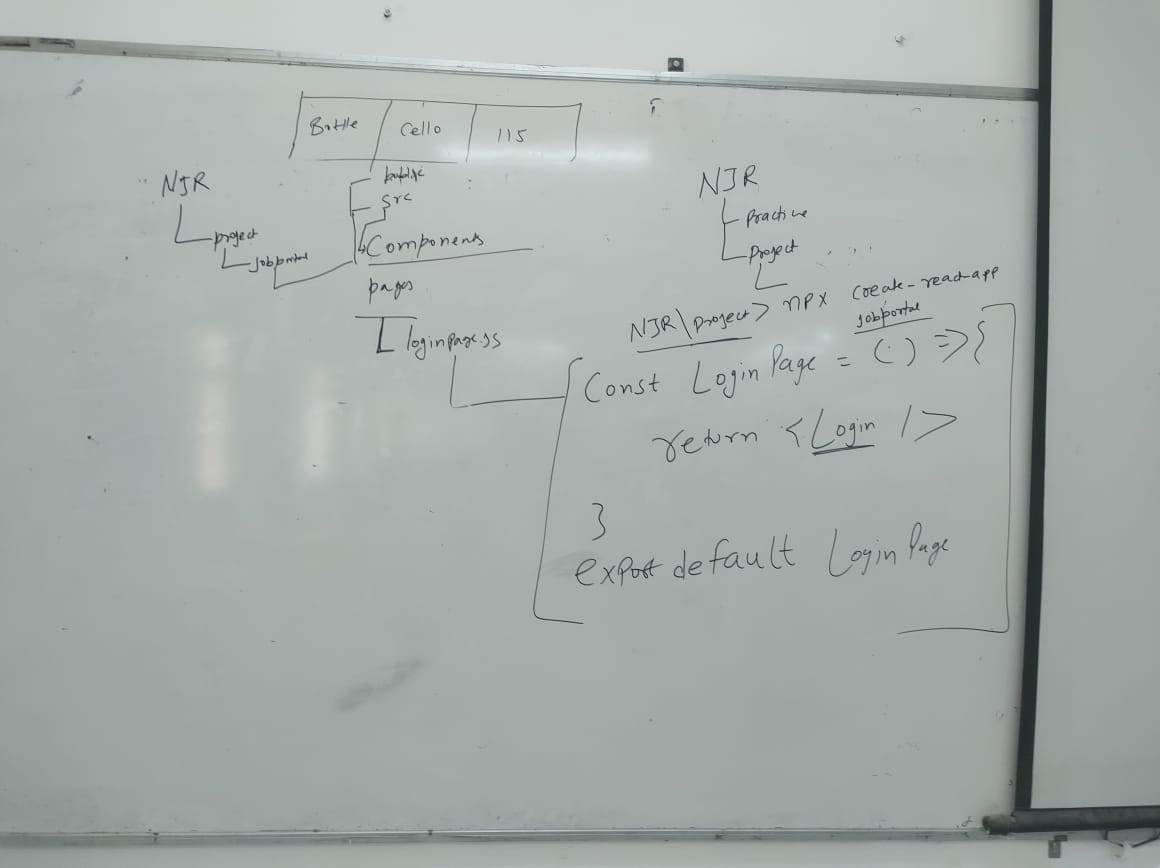 Bottle Cello 115
NJR
project
jobportal
public
src
Components
pages
loginpage.js
NJR
Practice
Project
NJR\project> npx create-react-app
jobportal
Const LoginPage = () => {
return <Login />
}
export default LoginPage